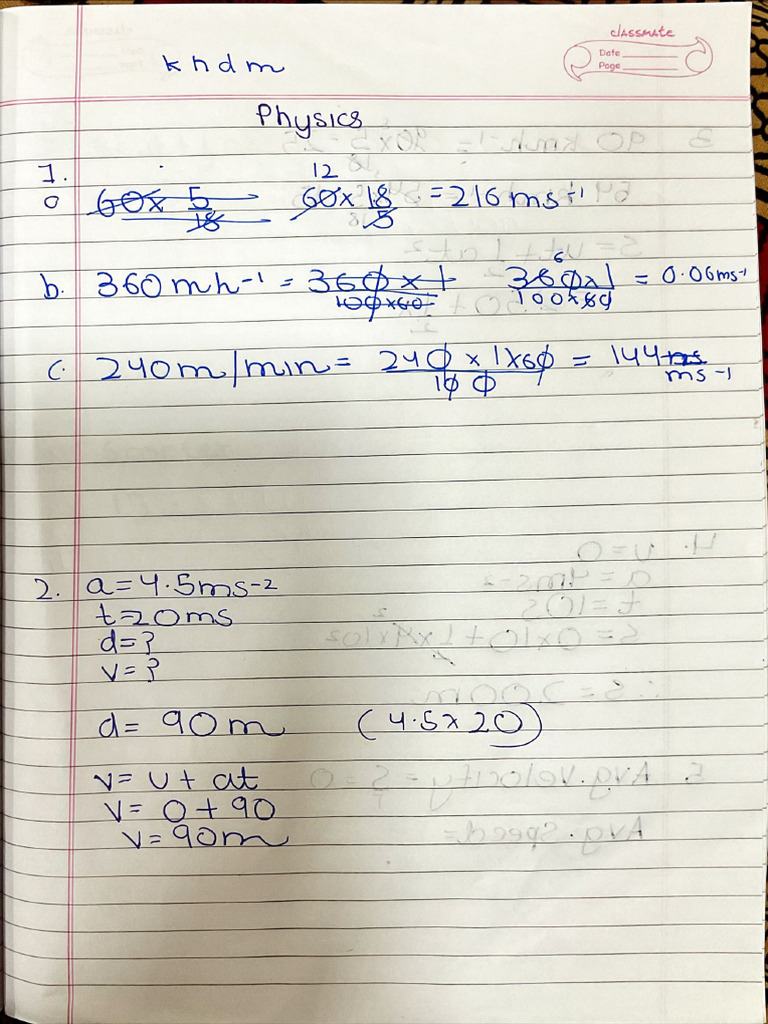 classmate
Date
Page
k h d m
Physics
1.
a 60x 5/18 60x 18/5 12 = 216 ms-1
b. 360 mh-1 = 360 x 1/100x60 360x1/100x60 6 = 0.06 ms-1
c. 240m/min = 240 x 1x60/100 = 144 ms
ms-1
2. a = 4.5ms-2
t=20ms
d=?
v=?
d= 90m (4.5x20)
v= u + at
v= 0 + 90
v=90m